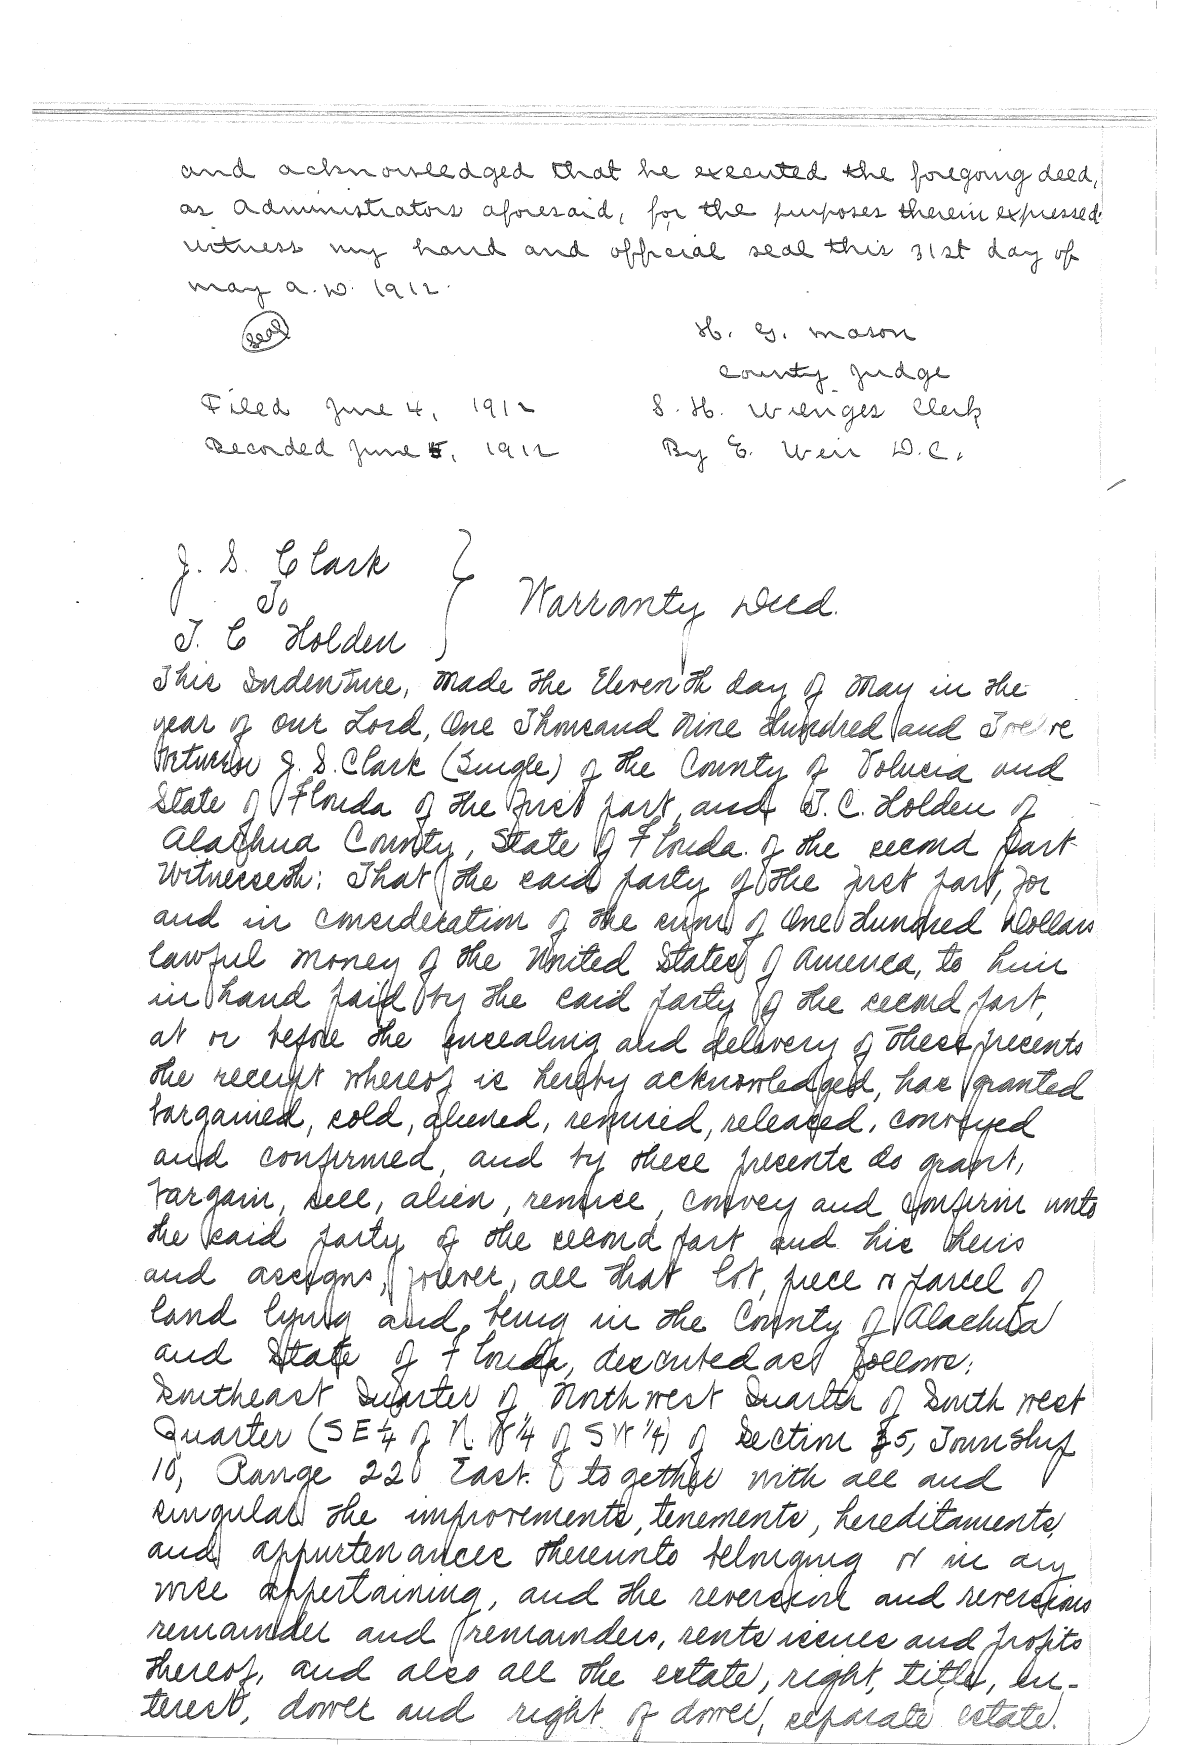 and acknowledged that he executed the foregoing deed,
as administrators aforesaid, for the purposes therein expressed.
witness my hand and official seal this 31st day of
may a.D. 1912.
Seal
H. G. Mason
County Judge
Filed June 4, 1912
S. H. Wienges Clerk
Recorded June 5, 1912
By E. Weir D.C.
J. S. Clark
To
T. C Holden
Warranty Deed.
This Indenture, Made the Eleventh day of May in the
year of our Lord, One Thousand Nine Hundred and Twelve
Between J. S. Clark (Single) of the County of Volusia and
State of Florida of the first part, and T. C. Holden of
Alachua County, State of Florida. of the second part
Witnesseth: That the said party of the first part, for
and in consideration of the sum of One Hundred Dollars
lawful money of the United States of America, to him
in hand paid by the said party of the second part,
at or before the ensealing and delivery of these presents
the receipt whereof is hereby acknowledged, has granted
bargained, sold, aliened, remised, released, conveyed
and confirmed, and by these presents do grant,
bargain, sell, alien, remise, convey and confirm unto
the said party of the second part and his heirs
and assigns, forever, all that lot, piece or parcel of
land lying and being in the County of Alachua
and State of Florida, described as follows:
Southeast Quarter of Northwest Quarter of South west
Quarter (SE¼ of N W¼ of SW¼) of Section 5, Township
10, Range 22 East. together with all and
singular the improvements, tenements, hereditaments,
and appurtenances thereunto belonging or in any
wise appertaining, and the reversion and reversions
remainder and remainders, rents issues and profits
thereof, and also all the estate, right, title, in-
terest, dower and right of dower, separate estate.